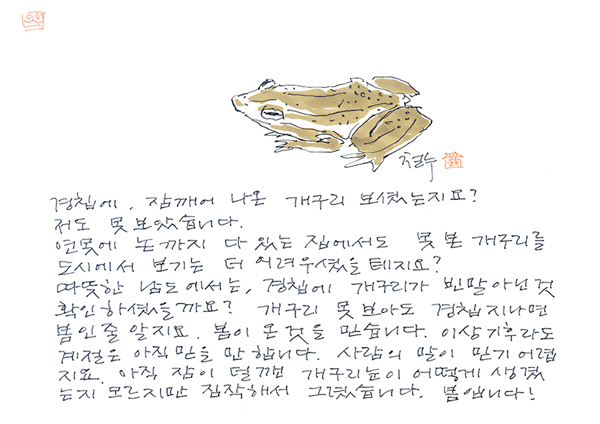 철수
경칩에, 잠깨어 나온 개구리 보셨는지요?
저도 못 보았습니다.
연못에 논까지 다 있는 집에서도 못 본 개구리를
도시에서 보기는 더 어려우셨을 테지요?
따뜻한 남도에서는, 경칩에 개구리가 빈말 아닌 것
확인하셨을까요? 개구리 못 보아도 경칩 지나면
봄인줄 알지요. 봄이 온 것을 믿습니다. 이상기후라도
계절은 아직 믿을 만 합니다. 사람의 말이 믿기 어렵
지요. 아직 잠이 덜 깬 개구리 눈이 어떻게 생겼
는지 모르지만 짐작해서 그렸습니다. 봄입니다!